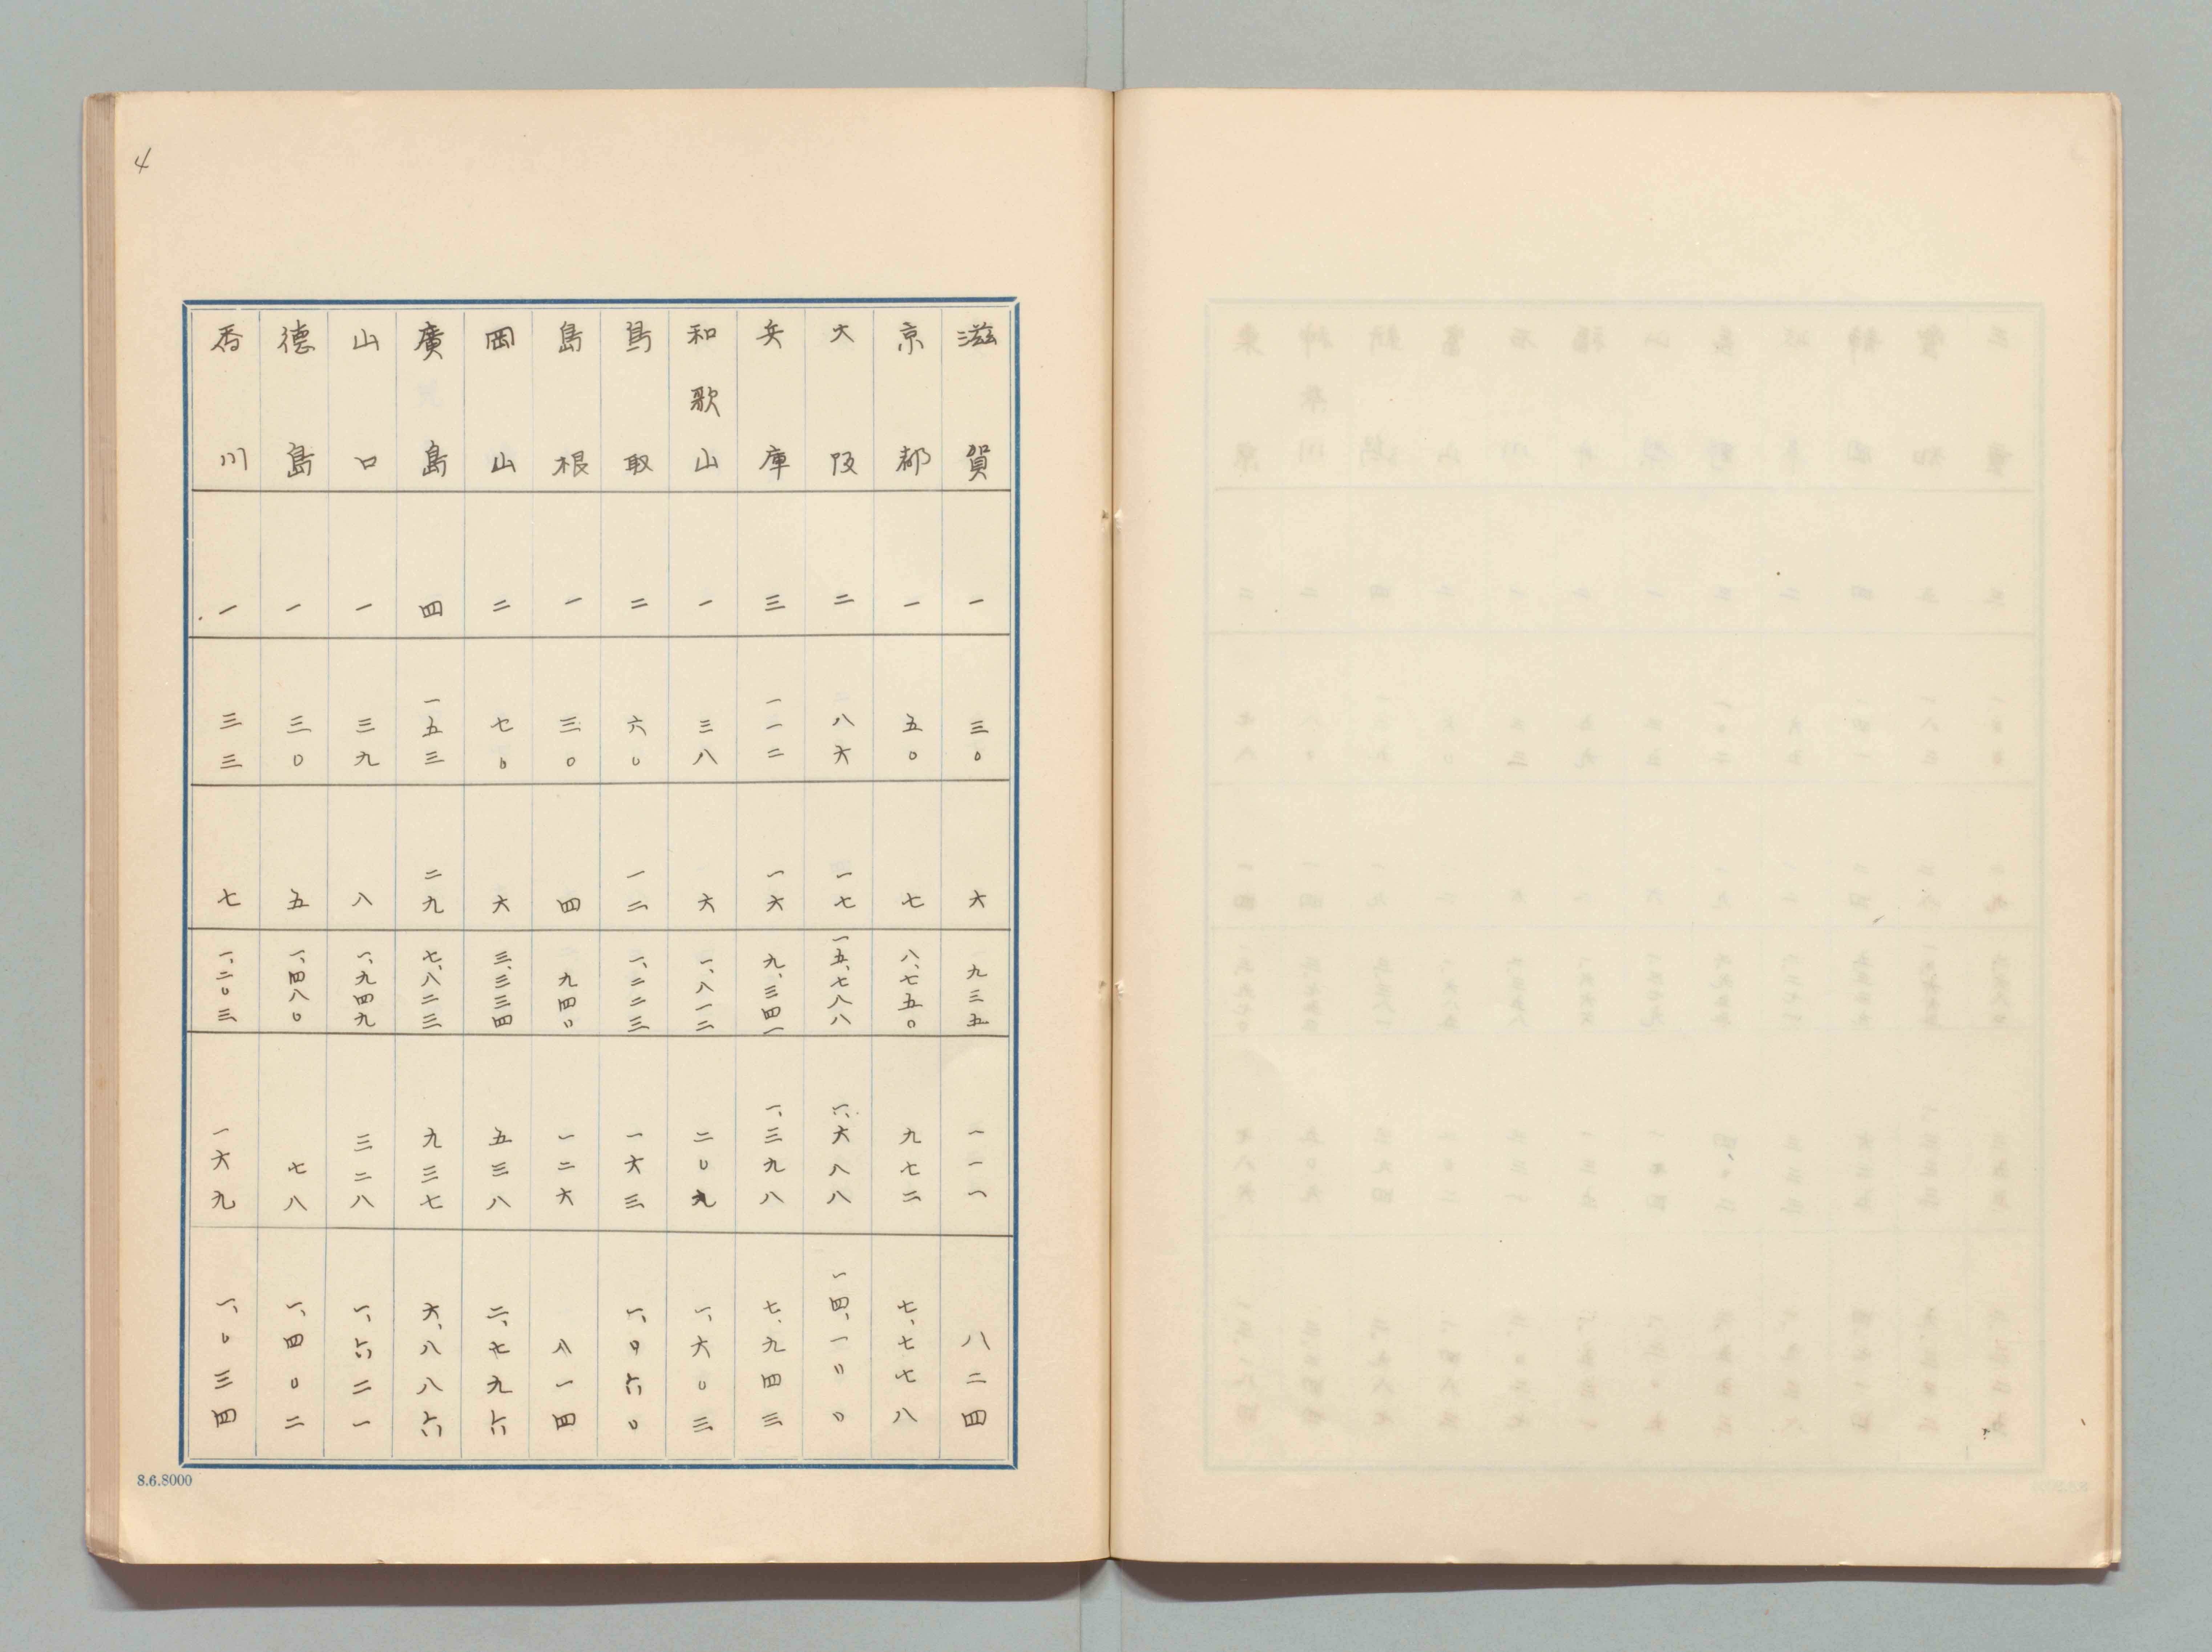 4
滋賀 一 三〇 六 九三五 一一一 八二四
京都 一 五〇 七 八、七五〇 九七二 七、七七八
大阪 二 八六 一七 一五、七八八 一、六八八 一四、一〇〇
兵庫 三 一一二 一六 九、三四一 一、三九八 七、九四三
和歌山 一 三八 六 一、八一二 二〇九 一、六〇三
鳥取 二 六〇 一二 一、二二三 一六三 一、〇六〇
島根 一 三〇 四 九四〇 一二六 八一四
岡山 二 七〇 六 三、三三四 五三八 二、七九六
廣島 四 一五三 二九 七、八二三 九三七 六、八八六
山口 一 三九 八 一、九四九 三二八 一、六二一
德島 一 三〇 五 一、四八〇 七八 一、四〇二
香川 一 三三 七 一、二〇三 一六九 一、〇三四
8.6.8000